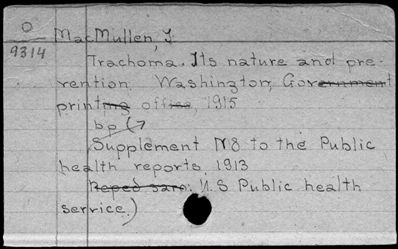 O
9314
MacMullen, J.
Trachoma. Its nature and pre-
vention. Washington, Government
printing office, 1915
6p (7
Supplement N8 to the Public
health reports, 1913
U.S Public health
service.)